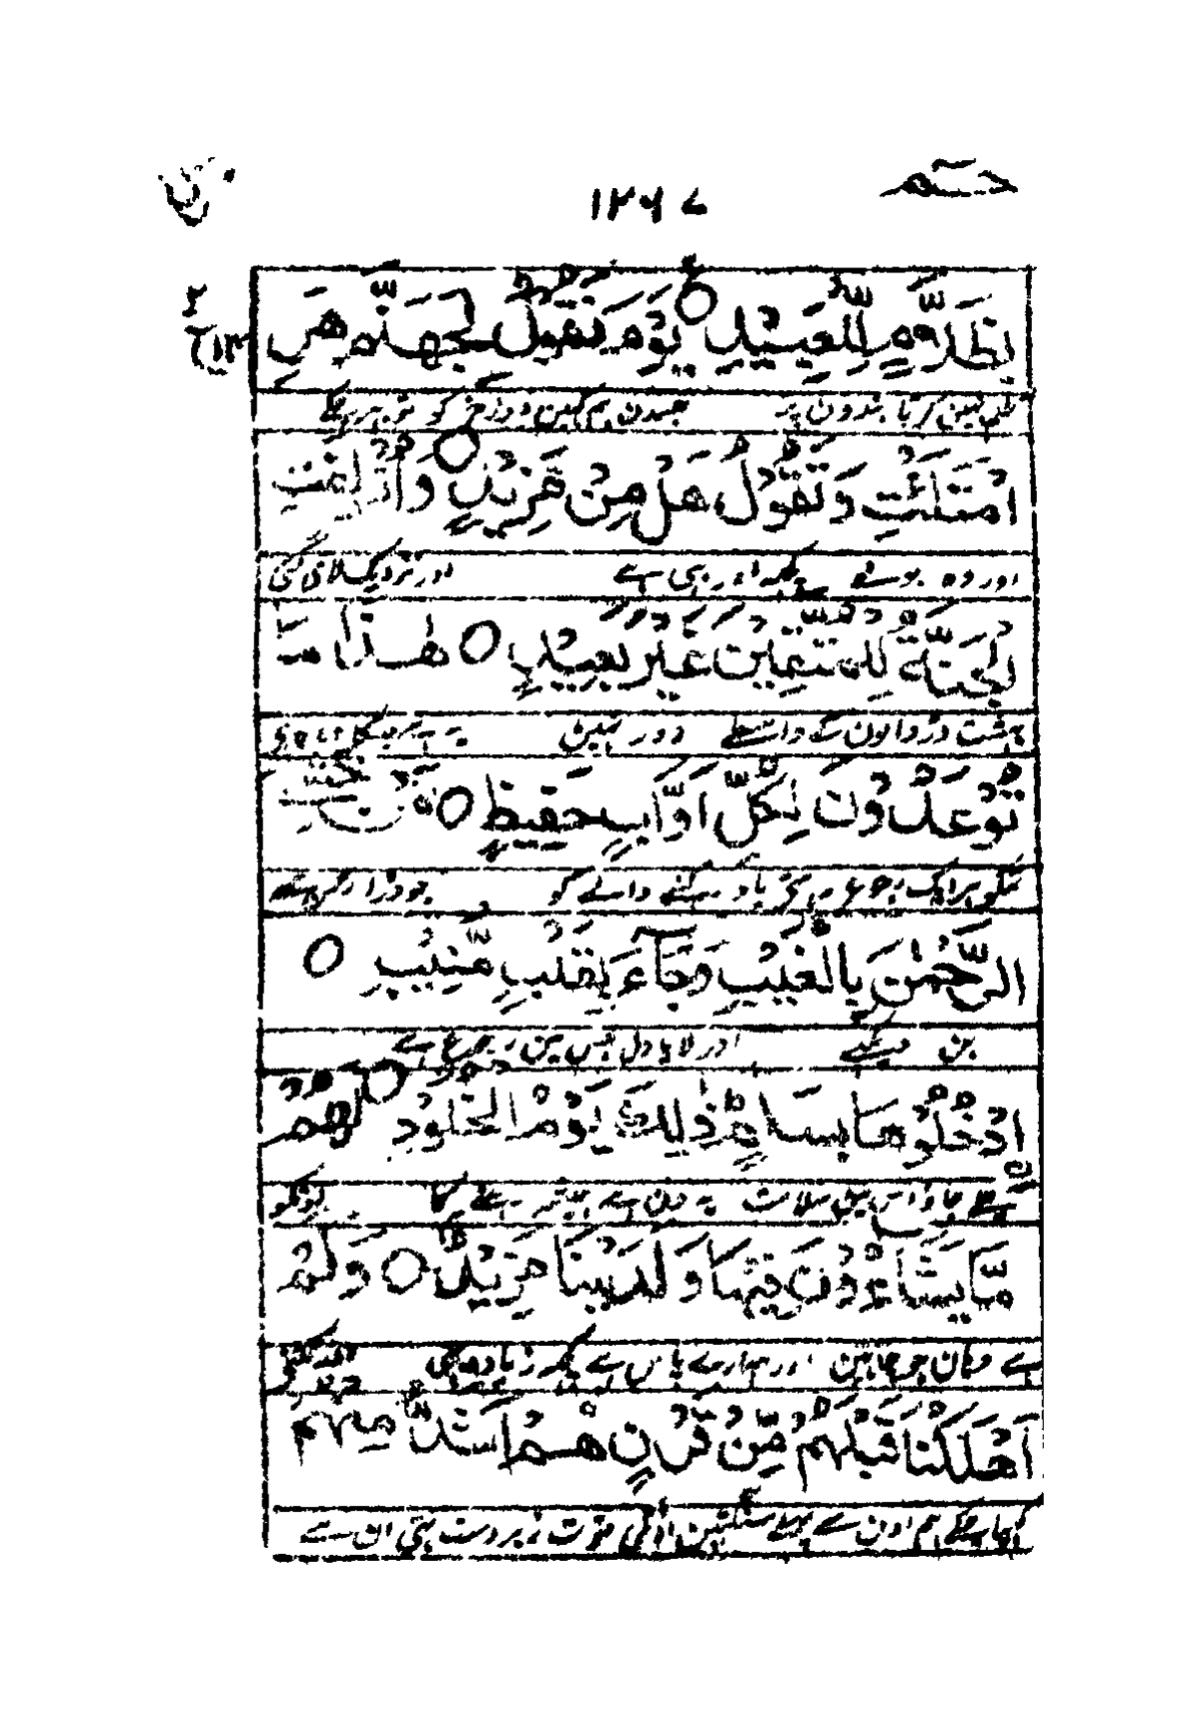 حٰـمٓ ١٢٦٧ ق
بِظَلَّامٍ لِّلْعَبِيْدِ ○ يَوْمَ نَقُوْلُ لِجَهَنَّمَ هَلِ
ظلم نہین کرتا بندون پر جسدن ہم کہین دوزخ کو تو بھر چکے
امْتَلَئْتِ وَتَقُوْلُ هَلْ مِنْ مَّزِيْدٍ ○ وَاُزْلِفَتِ
اور وہ بولے کچہ اور بہی ہے اور نزدیک لائی گئی
الْجَنَّةُ لِلْمُتَّقِيْنَ غَيْرَ بَعِيْدٍ ○ هٰذَا مَا
بہشت ڈر والون کے واسطے دور نہین یہ ہے جسکا
تُوْعَدُوْنَ لِكُلِّ اَوَّابٍ حَفِيْظٍ ○ مَنْ خَشِيَ
تمکو ہر ایک رجوع یاد رکہنے والے کو جو ڈرا رحمن سے
الرَّحْمٰنَ بِالْغَيْبِ وَجَآءَ بِقَلْبٍ مُّنِيْبٍ ○
بن دیکہے اور لایا دل جس مین رجوع ہے
ادْخُلُوْهَا بِسَلٰمٍ ذٰلِكَ يَوْمُ الْخُلُوْدِ ○ لَهُمْ
چلے جاؤ اس مین سلامت یہ دن ہے ہمیشہ رہنے کا
مَّا يَشَآءُوْنَ فِيْهَا وَلَدَيْنَا مَزِيْدٌ ○ وَكَمْ
ہے وہان جو چاہین اور ہمارے پاس ہے کچہ زیادہ بہی
اَهْلَكْنَا قَبْلَهُمْ مِّنْ قَرْنٍ هُمْ اَشَدُّ مِنْهُمْ
کہپا چکے ہم اون سے پہلے سنگتین اونکی قوت زبردست تہی ان سے